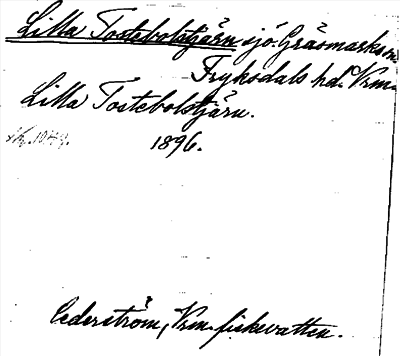 Lilla Tostebolstjärn sjö. Gräsmarks sn
Fryksdals hd. Vrm.
Lilla Tostebolstjärn.
1896.
Cederström, Vrm. fiskevatten.